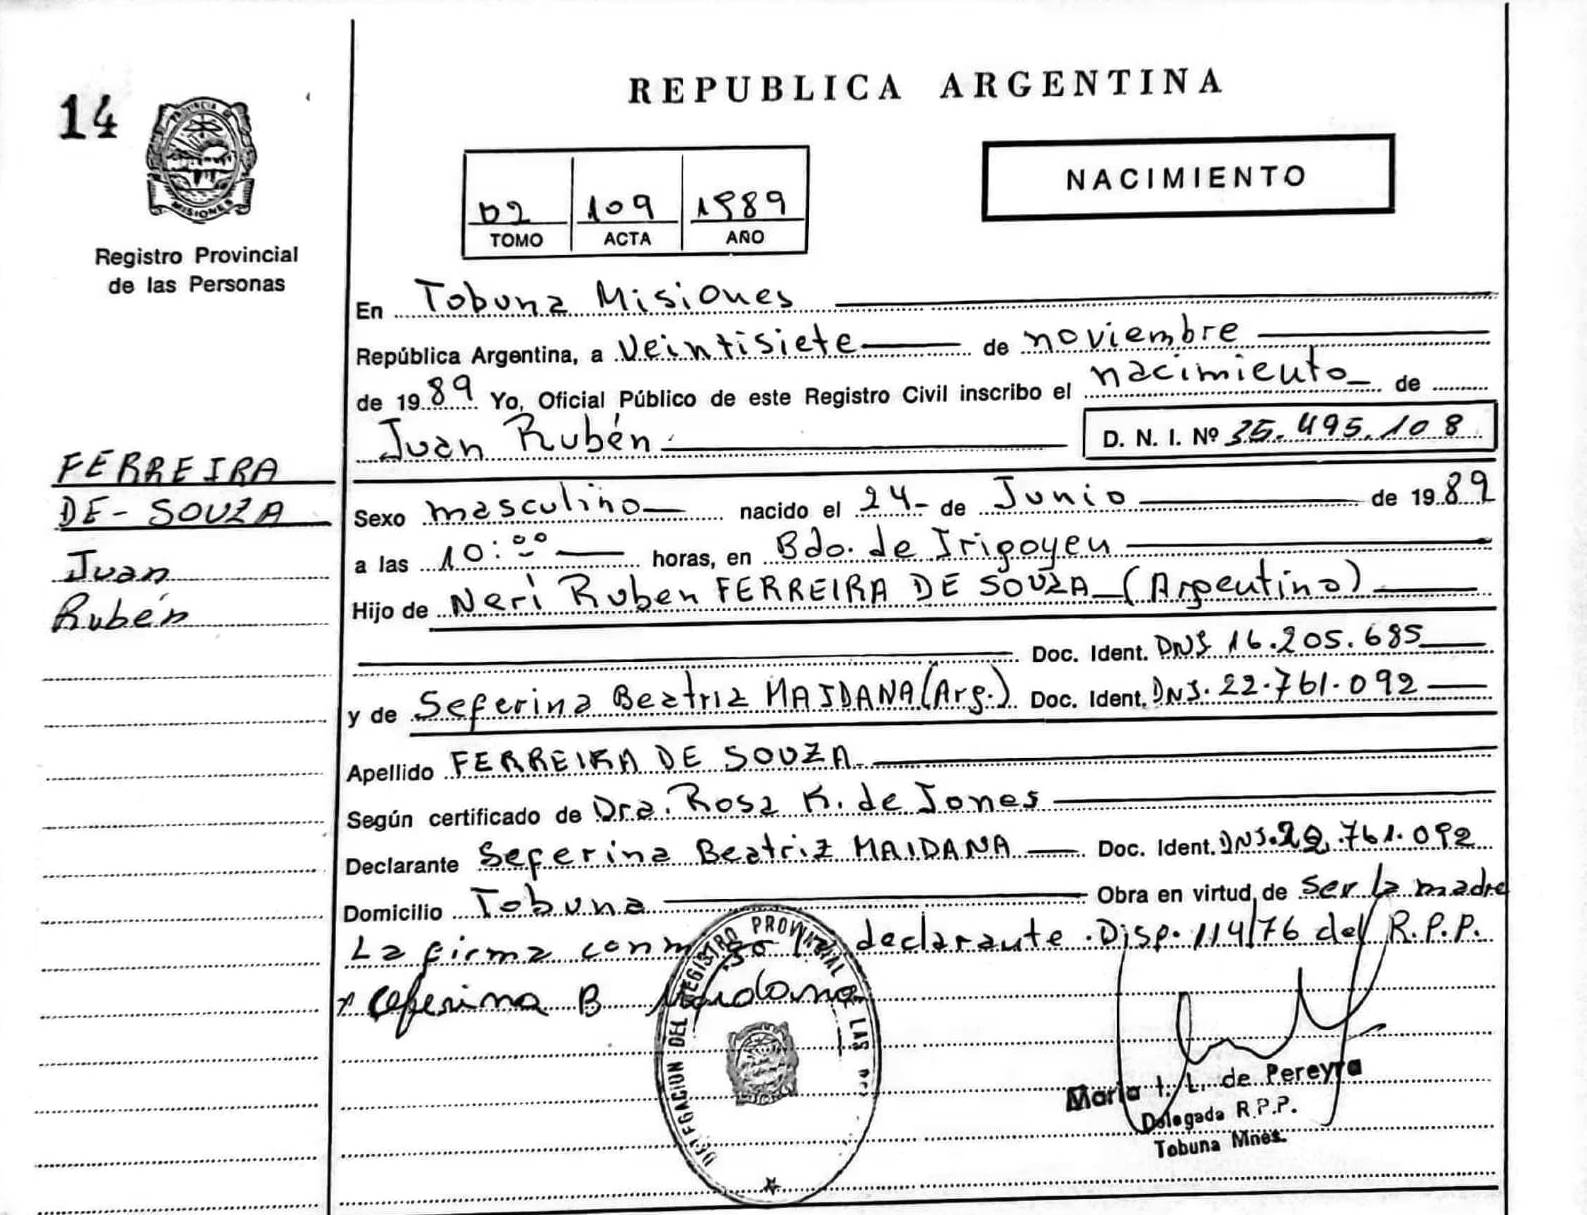 14
PROVINCIA DE
MISIONES
Registro Provincial
de las Personas
REPUBLICA ARGENTINA
NACIMIENTO
02 109 1989
TOMO ACTA AÑO
En Tobuna Misiones
República Argentina, a veintisiete de noviembre
de 1989 Yo, Oficial Público de este Registro Civil inscribo el nacimiento de
Juan Rubén D. N. I. Nº 35.495.108
FERREIRA
DE-SOUZA
Juan
Rubén
Sexo masculino nacido el 24- de Junio de 1989
a las 10:00 horas, en Bdo. de Irigoyen
Hijo de Neri Ruben FERREIRA DE SOUZA (Argentino)
Doc. Ident. DNI 16.205.685
y de Seferina Beatriz MAIDANA (Arg.) Doc. Ident. DNI. 22.761.092
Apellido FERREIRA DE SOUZA
Según certificado de Dra. Rosa K. de Jones
Declarante Seferina Beatriz MAIDANA Doc. Ident. DNI. 22.761.092
Domicilio Tobuna Obra en virtud de ser la madre
La firma conmigo la declarante. Disp. 114/76 del R.P.P.
x Ceferina B Maidana
DELEGACION DEL REGISTRO PROVINCIAL DE LAS
Maria I. L. de Pereyra
Delegada R.P.P.
Tobuna Mnes.